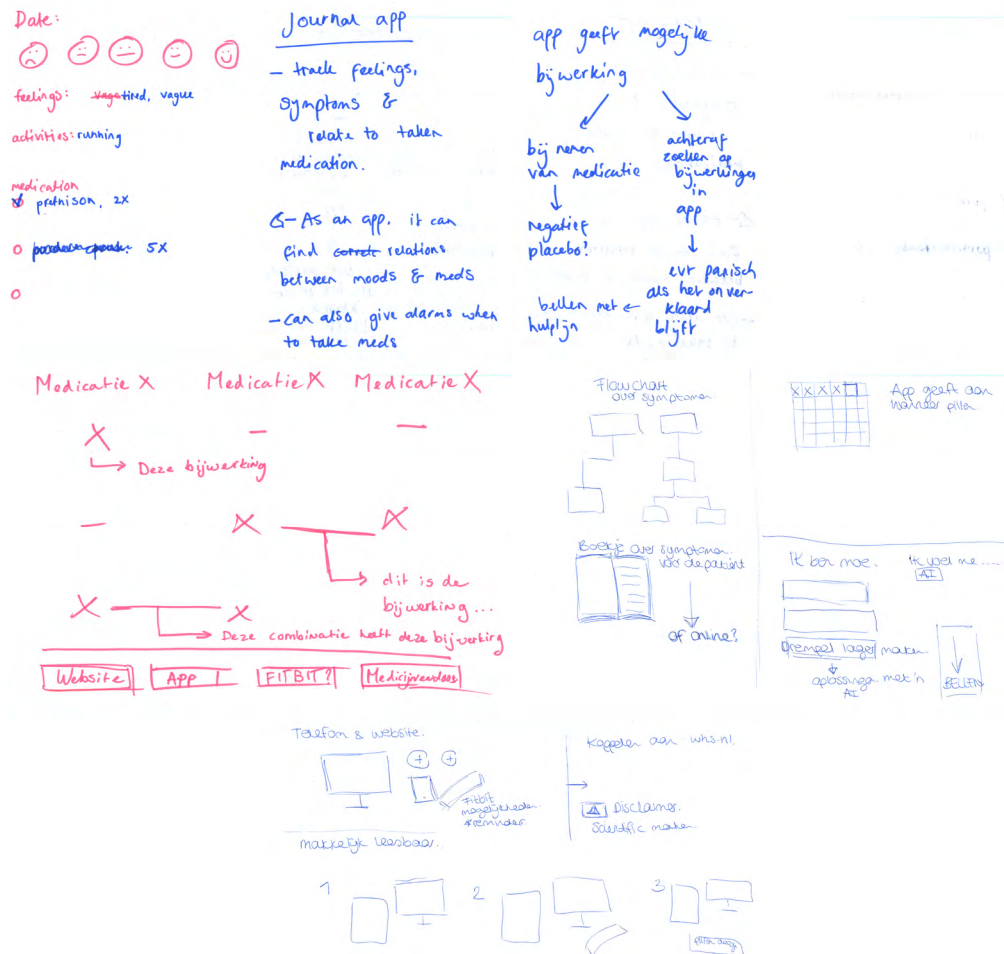 Date:
feelings: tired, vague
activities: running
medication
prednison, 2x
5x
Journal app
– track feelings,
symptoms &
relate to taken
medication.
– As an app, it can
find relations
between moods & meds
– Can also give alarms when
to take meds
app geeft mogelijke
bijwerking
bij nemen
van medicatie
negatief
placebo?
achteraf
zoeken op
bijwerkingen
in
app
evt panisch
als het onver-
klaard
blijft
bellen met
hulplijn
Medicatie X Medicatie X Medicatie X
X – –
Deze bijwerking
– X X
dit is de
bijwerking ...
X X
Deze combinatie heeft deze bijwerking
Website App FITBIT? Medicijnendoos
Flowchart
over symptomen
Boekje over symptomen
voor de patient
of online?
X X X X
App geeft aan
wanneer pillen
Ik ben moe.
Ik voel me .....
AI
Drempel lager maken
oplossingen met 'n
AI
BELLEN
Telefoon & website.
Fitbit
mogelijkheden
reminder.
makkelijk leesbaar.
Koppelen aan whs.nl.
Disclaimer.
Scientific maken
1 2 3